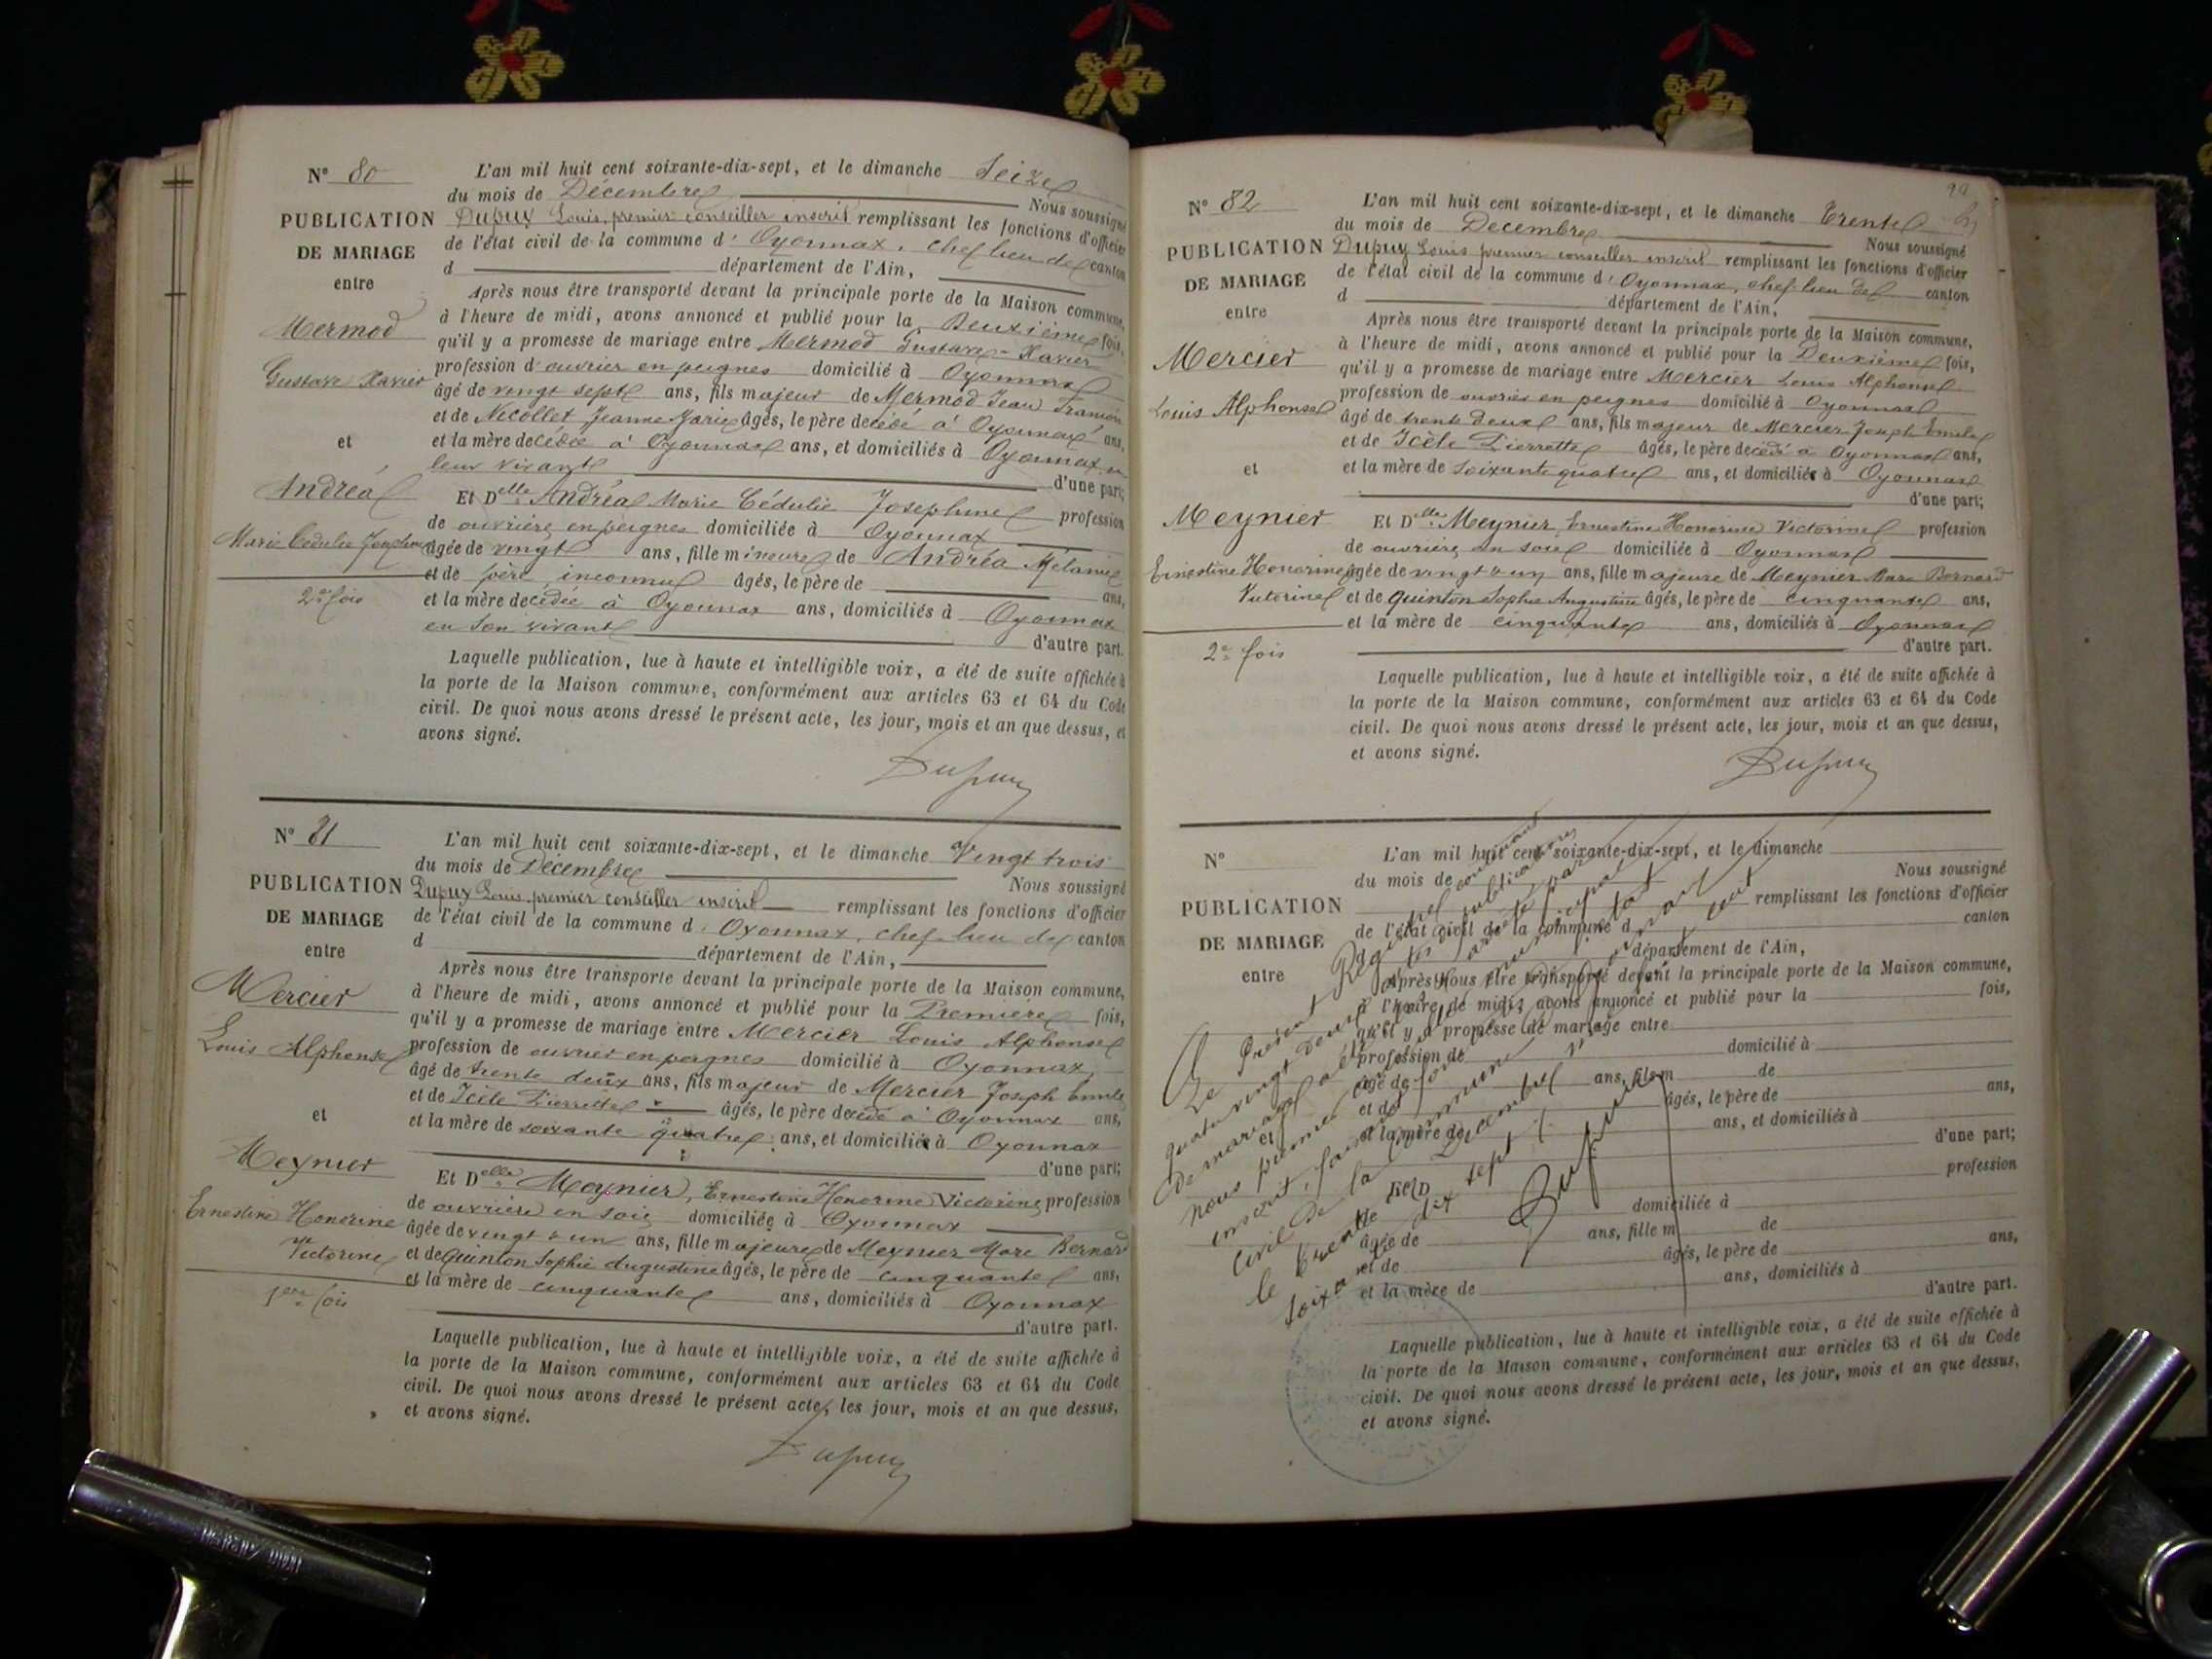 N° 80
PUBLICATION
DE MARIAGE
entre
Mermod
Gustave Xavier
et
Andréa
Marie Cédulie Josephine
2e fois
L'an mil huit cent soixante-dix-sept, et le dimanche Seize
du mois de Décembre Nous soussigné
Dupuy Louis, premier conseiller inscrit remplissant les fonctions d'officier
de l'état civil de la commune d' Oyonnax, chef lieu de canton
d département de l'Ain,
Après nous être transporté devant la principale porte de la Maison commune,
à l'heure de midi, avons annoncé et publié pour la Deuxième fois,
qu'il y a promesse de mariage entre Mermod Gustave-Xavier
profession d'ouvrier en peignes domicilié à Oyonnax
âgé de vingt sept ans, fils majeur de Mermod Jean François
et de Nicollet Jeanne Marie âgés, le père decédé à Oyonnax ans,
et la mère decédée à Oyonnax ans, et domiciliés à Oyonnax en
leur vivant d'une part;
Et Delle Andréa Marie Cédulie Josephine profession
de ouvrière en peignes domiciliée à Oyonnax
âgée de vingt ans, fille mineure de Andréa Mélanie
et de père inconnu âgés, le père de ans,
et la mère decédée à Oyonnax ans, domiciliés à Oyonnax
en son vivant d'autre part.
Laquelle publication, lue à haute et intelligible voix, a été de suite affichée à
la porte de la Maison commune, conformément aux articles 63 et 64 du Code
civil. De quoi nous avons dressé le présent acte, les jour, mois et an que dessus, et
avons signé.
Dupuy
N° 81
PUBLICATION
DE MARIAGE
entre
Mercier
Louis Alphonse
et
Meynier
Ernestine Honorine
Victorine
1ère fois
L'an mil huit cent soixante-dix-sept, et le dimanche Vingt trois
du mois de Décembre Nous soussigné
Dupuy Louis, premier conseiller inscrit remplissant les fonctions d'officier
de l'état civil de la commune d' Oyonnax, chef-lieu de canton
d département de l'Ain,
Après nous être transporté devant la principale porte de la Maison commune,
à l'heure de midi, avons annoncé et publié pour la Première fois,
qu'il y a promesse de mariage entre Mercier Louis Alphonse
profession de ouvrier en peignes domicilié à Oyonnax
âgé de trente deux ans, fils majeur de Mercier Joseph Emile
et de Icèle Pierrette âgés, le père decédé à Oyonnax ans,
et la mère de soixante quatre ans, et domiciliés à Oyonnax
d'une part;
Et Delle Meynier, Ernestine Honorine Victorine profession
de ouvrière en soie domiciliée à Oyonnax
âgée de vingt & un ans, fille majeure de Meynier Marc Bernard
et de Quinton Sophie Augustine âgés, le père de cinquante ans,
et la mère de cinquante ans, domiciliés à Oyonnax
d'autre part.
Laquelle publication, lue à haute et intelligible voix, a été de suite affichée à
la porte de la Maison commune, conformément aux articles 63 et 64 du Code
civil. De quoi nous avons dressé le présent acte, les jour, mois et an que dessus,
et avons signé.
Dupuy
N° 82
PUBLICATION
DE MARIAGE
entre
Mercier
Louis Alphonse
et
Meynier
Ernestine Honorine
Victorine
2e fois
L'an mil huit cent soixante-dix-sept, et le dimanche Trente
du mois de Decembre Nous soussigné
Dupuy Louis premier conseiller inscrit remplissant les fonctions d'officier
de l'état civil de la commune d' Oyonnax, chef lieu de canton
d département de l'Ain,
Après nous être transporté devant la principale porte de la Maison commune,
à l'heure de midi, avons annoncé et publié pour la Deuxième fois,
qu'il y a promesse de mariage entre Mercier Louis Alphonse
profession de ouvrier en peignes domicilié à Oyonnax
âgé de trente deux ans, fils majeur de Mercier Joseph Emile
et de Icèle Pierrette âgés, le père decédé à Oyonnax ans,
et la mère de soixante quatre ans, et domiciliés à Oyonnax
d'une part;
Et Delle Meynier, Ernestine Honorine Victorine profession
de ouvrière en soie domiciliée à Oyonnax
âgée de vingt & un ans, fille majeure de Meynier Marc Bernard
et de Quinton Sophie Augustine âgés, le père de cinquante ans,
et la mère de cinquante ans, domiciliés à Oyonnax
d'autre part.
Laquelle publication, lue à haute et intelligible voix, a été de suite affichée à
la porte de la Maison commune, conformément aux articles 63 et 64 du Code
civil. De quoi nous avons dressé le présent acte, les jour, mois et an que dessus,
et avons signé.
Dupuy
N°
PUBLICATION
DE MARIAGE
entre
et
L'an mil huit cent soixante-dix-sept, et le dimanche
du mois de Nous soussigné
remplissant les fonctions d'officier
de l'état civil de la commune d canton
département de l'Ain,
Après nous être transporté devant la principale porte de la Maison commune,
à l'heure de midi, avons annoncé et publié pour la fois,
qu'il y a promesse de mariage entre
profession de domicilié à
âgé de ans, fils m de
et de âgés, le père de ans,
et la mère de ans, et domiciliés à
d'une part;
Et D profession
domiciliée à
âgée de ans, fille m de
et de âgés, le père de ans,
et la mère de ans, domiciliés à
d'autre part.
Laquelle publication, lue à haute et intelligible voix, a été de suite affichée à
la porte de la Maison commune, conformément aux articles 63 et 64 du Code
civil. De quoi nous avons dressé le présent acte, les jour, mois et an que dessus,
et avons signé.
Le Présent Registre
quatre vingt deux publications
de mariage a été arrêté par
nous premier conseiller municipal
inscrit, faisant fonctions
civil de la Commune
le trente Decembre
soixante dix sept
Dupuy